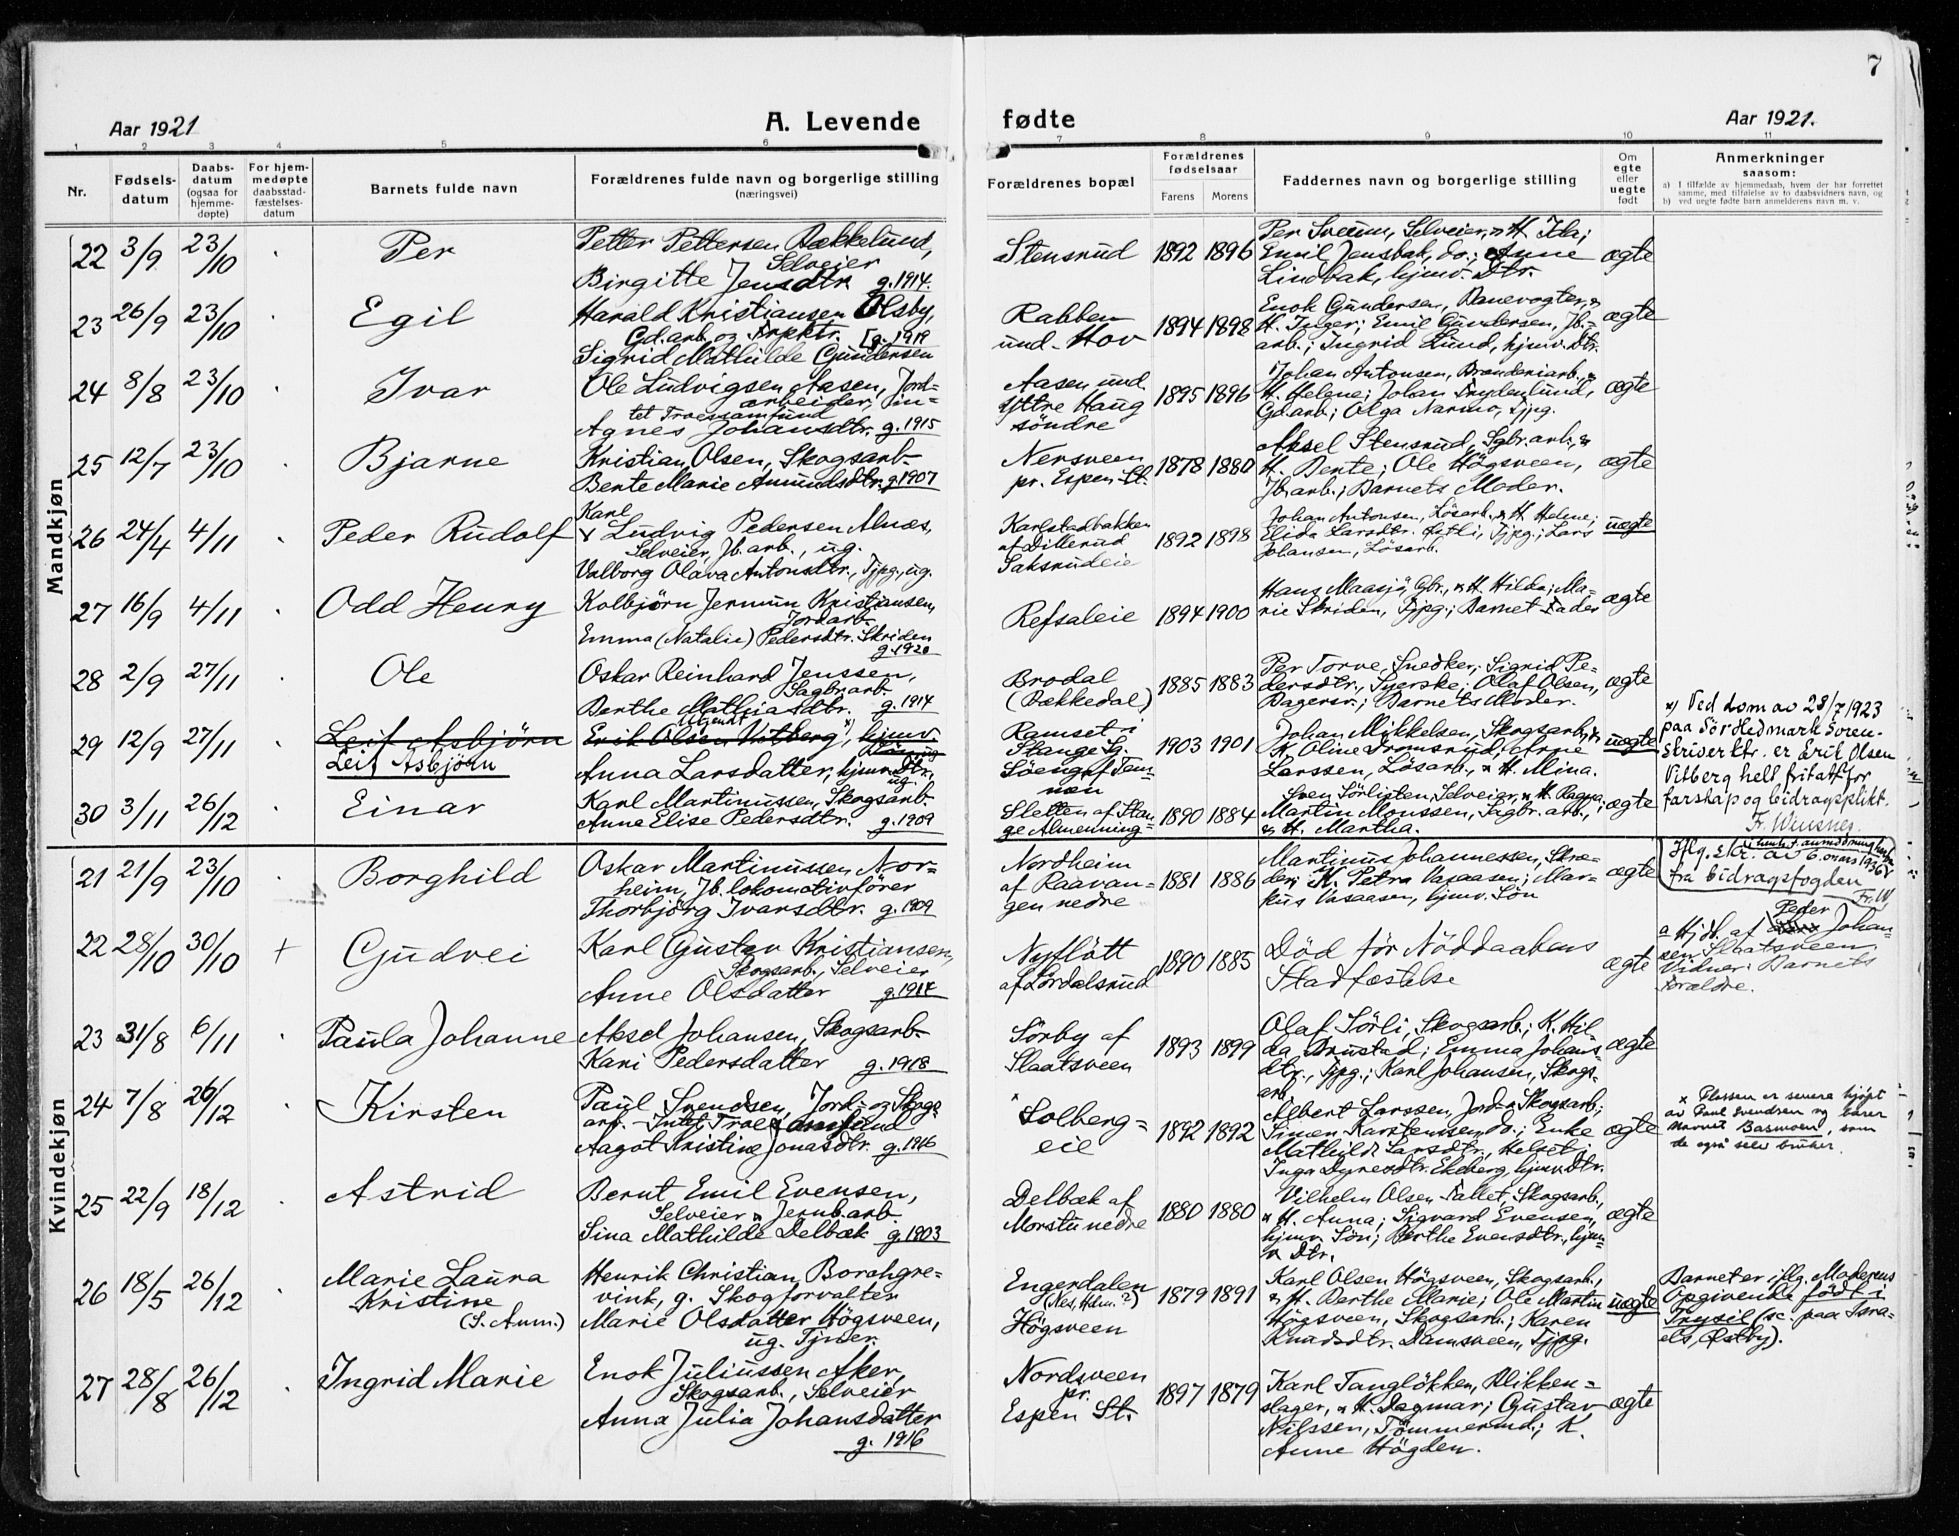 7
Aar 1921
A. Levende
fødte
Aar 1921.
1 2 3 4 5 6 7 8 9 10 11
Nr.
Fødsels-
datum
Daabs-
datum
(ogsaa for
hjemme-
døpte)
For hjem-
medøpte
daabsstad-
fæstelses-
datum
Barnets fulde navn
Forældrenes fulde navn og borgerlige stilling
(næringsvei)
Forældrenes bopæl
Forældrenes
fødselsaar
Farens Morens
Faddernes navn og borgerlige stilling
Om
egte
eller
uegte
født
Anmerkninger
saasom:
a) I tilfælde av hjemmedaab, hvem der har forrettet
samme, med tilføielse av to daabsvidners navn, og
b) ved uegte fødte barn anmelderens navn m. v.
Mandkjøn
22 3/9 23/10 Per
Petter Pettersen Bækkelund,
Selveier
Birgitte Jensdtr. g. 1914.
Stensrud
1892 1896
Per Sveum, Selveier, & H. Ida;
Emil Jensbak, do.; Anne
Lindbak, hjmv. Dtr.
ægte
23 26/9 23/10 Egil
Harald Kristiansen Olsby,
Gd.arb. og Frpktr. [g. 1919
Sigrid Mathilde Gundersen
Rabben
und. Hov
1894 1898
Enok Gundersen, Banevogter, &
H. Inger; Emil Gundersen, Jb.-
arb.; Ingrid Lund, hjmv. Dtr.
ægte
24 8/8 23/10 Ivar
Ole Ludvigsen Aasen, Jord-
arbeider, Jin-
tet Troessamfund
Agnes Johansdtr. g. 1915
Aasen und.
Yttre Haug
söndre
1895 1896
Johan Antonsen, Brænderiarb., &
H. Helene; Johan Frydenlund,
Gd.arb.; Olga Narmo, Tjpg.
ægte
25 12/7 23/10 Bjarne
Kristian Olsen, Skogsarb.
Bente Marie Amundsdtr. g. 1907
Nersveen
pr. Espen St.
1878 1880
Aksel Stensrud, Sgbr.arb., &
H. Bente; Ole Högsveen,
Jb.arb.; Barnets Moder.
ægte
26 24/4 4/11 Peder Rudolf
Karl
Ludvig Pedersen Alnæs,
Selveier, Jb.arb., ug.
Valborg Olava Antonsdtr., Tjpg., ug.
Karlstadbakken
af Dillerud
Saksrudeie
1892 1898
Johan Antonsen, Lösarb., & H. Helene;
Elida Larsdtr. Östli, Tjpg.; Lars
Johansen, Lösarb.
uægte
27 16/9 4/11 Odd Henry
Kolbjörn Jermun Kristiansen,
Jordarb.
Emma (Natalie) Pedersdtr. Skriden
g. 1920
Refsaleie
1894 1900
Hans Maasjö, Gbr., & H. Hilda; Ma-
rie Skriden, Tjpg.; Barnet Fader
ægte
28 2/9 27/11 Ole
Oskar Reinhard Jenssen,
Sagbr.arb.
Berthe Mathiasdtr. g. 1914
Brodal
(Bækkedal)
1885 1883
Per Torve, Snedker; Sigrid Pe-
dersdtr., Syerske; Olaf Olsen,
Bagersv.; Barnets Moder.
ægte
29 12/9 27/11 Leif Asbjörn
Leif Asbjörn
Erik Olsen Vitberg x), hjmv.
Sön, ug
Anna Larsdatter, hjmv. Dtr.,
ug.
Ramset i
Stange Sg.
Söeng af Tom-
men
1903 1901
Johan Mikkelsen, Skogsarb., &
K. Oline Tromsrud, Arne
Larssen, Lösarb., & H. Mina.
uægte
x) Ved dom av 28/7 1923
paa Sör Hedmark Soren-
skriverktr. er Erik Olsen
Vitberg helt fritatt for
farskap og bidragsplikt.
Fr. Winsnes.
30 3/11 26/12 Einar
Karl Martinussen, Skogsarb.
Anne Elise Pedersdtr. g. 1909
Sletten af Stan-
ge Almenning
1890 1884
Sven Sörlisten, Selveier, & H. Ragna;
Martin Monssen, Sagbr.arb.,
& H. Martha.
ægte
Kvindekjøn
21 21/9 23/10 Borghild
Oskar Martinussen Nor-
heim, Jb. lokomotivförer
Thorbjörg Ivarsdtr. g. 1909
Nordheim
af Raavan-
gen nedre
1881 1886
Martinus Johannessen, Skræ-
der; K. Petra Vasaasen; Mar-
kus Vasaasen, hjmv. Sön
ægte
Iflg. skr. av 6. mars 1936
fra bidragsfogden
Fr. W.
22 28/10 30/10 + Gudvei
Karl Gustav Kristiansen,
Skogsarb., Selveier
Anne Olsdatter g. 1914
Nyflött
af Lördalsrud
1890 1885
Död för Nöddaabens
Stadfæstelse
ægte
a Hjdb. af Peder Johan-
sen Slaatsveen
Vidner: Barnets
Forældre.
23 31/8 6/11 Paula Johanne
Aksel Johansen, Skogsarb.
Kari Pedersdatter g. 1918
Sörby af
Slaatsveen
1893 1899
Olaf Sörli, Skogsarb.; K. Hil-
da Brustad; Emma Johans-
dtr., Tjpg.; Karl Johansen, Skogs-
arb.
ægte
24 7/8 26/12 Kirsten
Paul Svendsen, Jord- og Skogs-
arb. - Intet Troessamfund
Aagot Kristine Jonasdtr. g. 1916
x Solberg-
eie
1892 1892
Albert Larssen, Jord & Skogsarb.;
Simen Karstenssen, do.; Enke
Mathilde Larsdtr. Helset;
Inga Dyresdtr. Ekeberg, hjmv. Dtr.
ægte
x Plassen er senere kjøpt
av Paul Svendsen og bærer
navnet Basmoen, som
de også selv bruker.
25 22/9 18/12 Astrid
Bernt Emil Evensen,
Selveier & Jernb.arb.
Sina Mathilde Delbæk g. 1903
Delbæk af
Morstu nedre
1880 1880
Vilhelm Olsen Fallet, Skogsarb.,
& H. Anna; Sigvard Evensen,
hjmv. Sön; Berthe Evensdtr., hjm-
v. Dtr.
ægte
26 18/5 26/12 Marie Laura
Kristine
(S. Anm.)
Henrik Christian Borchgre-
vink, g. Skogforvalter
Marie Olsdatter Högsveen,
ug. Tjner
Engerdalen
(Nes, Hdm.?)
Högsveen
1879 1891
Karl Olsen Högsveen, Skogsarb.,
& H. Berthe Marie; Ole Martin
Högsveen, Skogsarb.; Karen
Knudsdtr. Damsveen, Tjpg.
uægte
Barnet er iflg. Moderens
Opgivende födt i
Trysil (sc. paa Isra-
els, Østby).
27 28/8 26/12 Ingrid Marie
Enok Juliussen Aker,
Skogsarb., Selveier
Anna Julia Johansdatter
g. 1916
Nordsveen
pr.
Espen St.
1897 1879
Karl Tangløkken, Blikken-
slager, & H. Dagmar; Gustav
Nilssen, Tömmermd.; K.
Anne Högden.
ægte